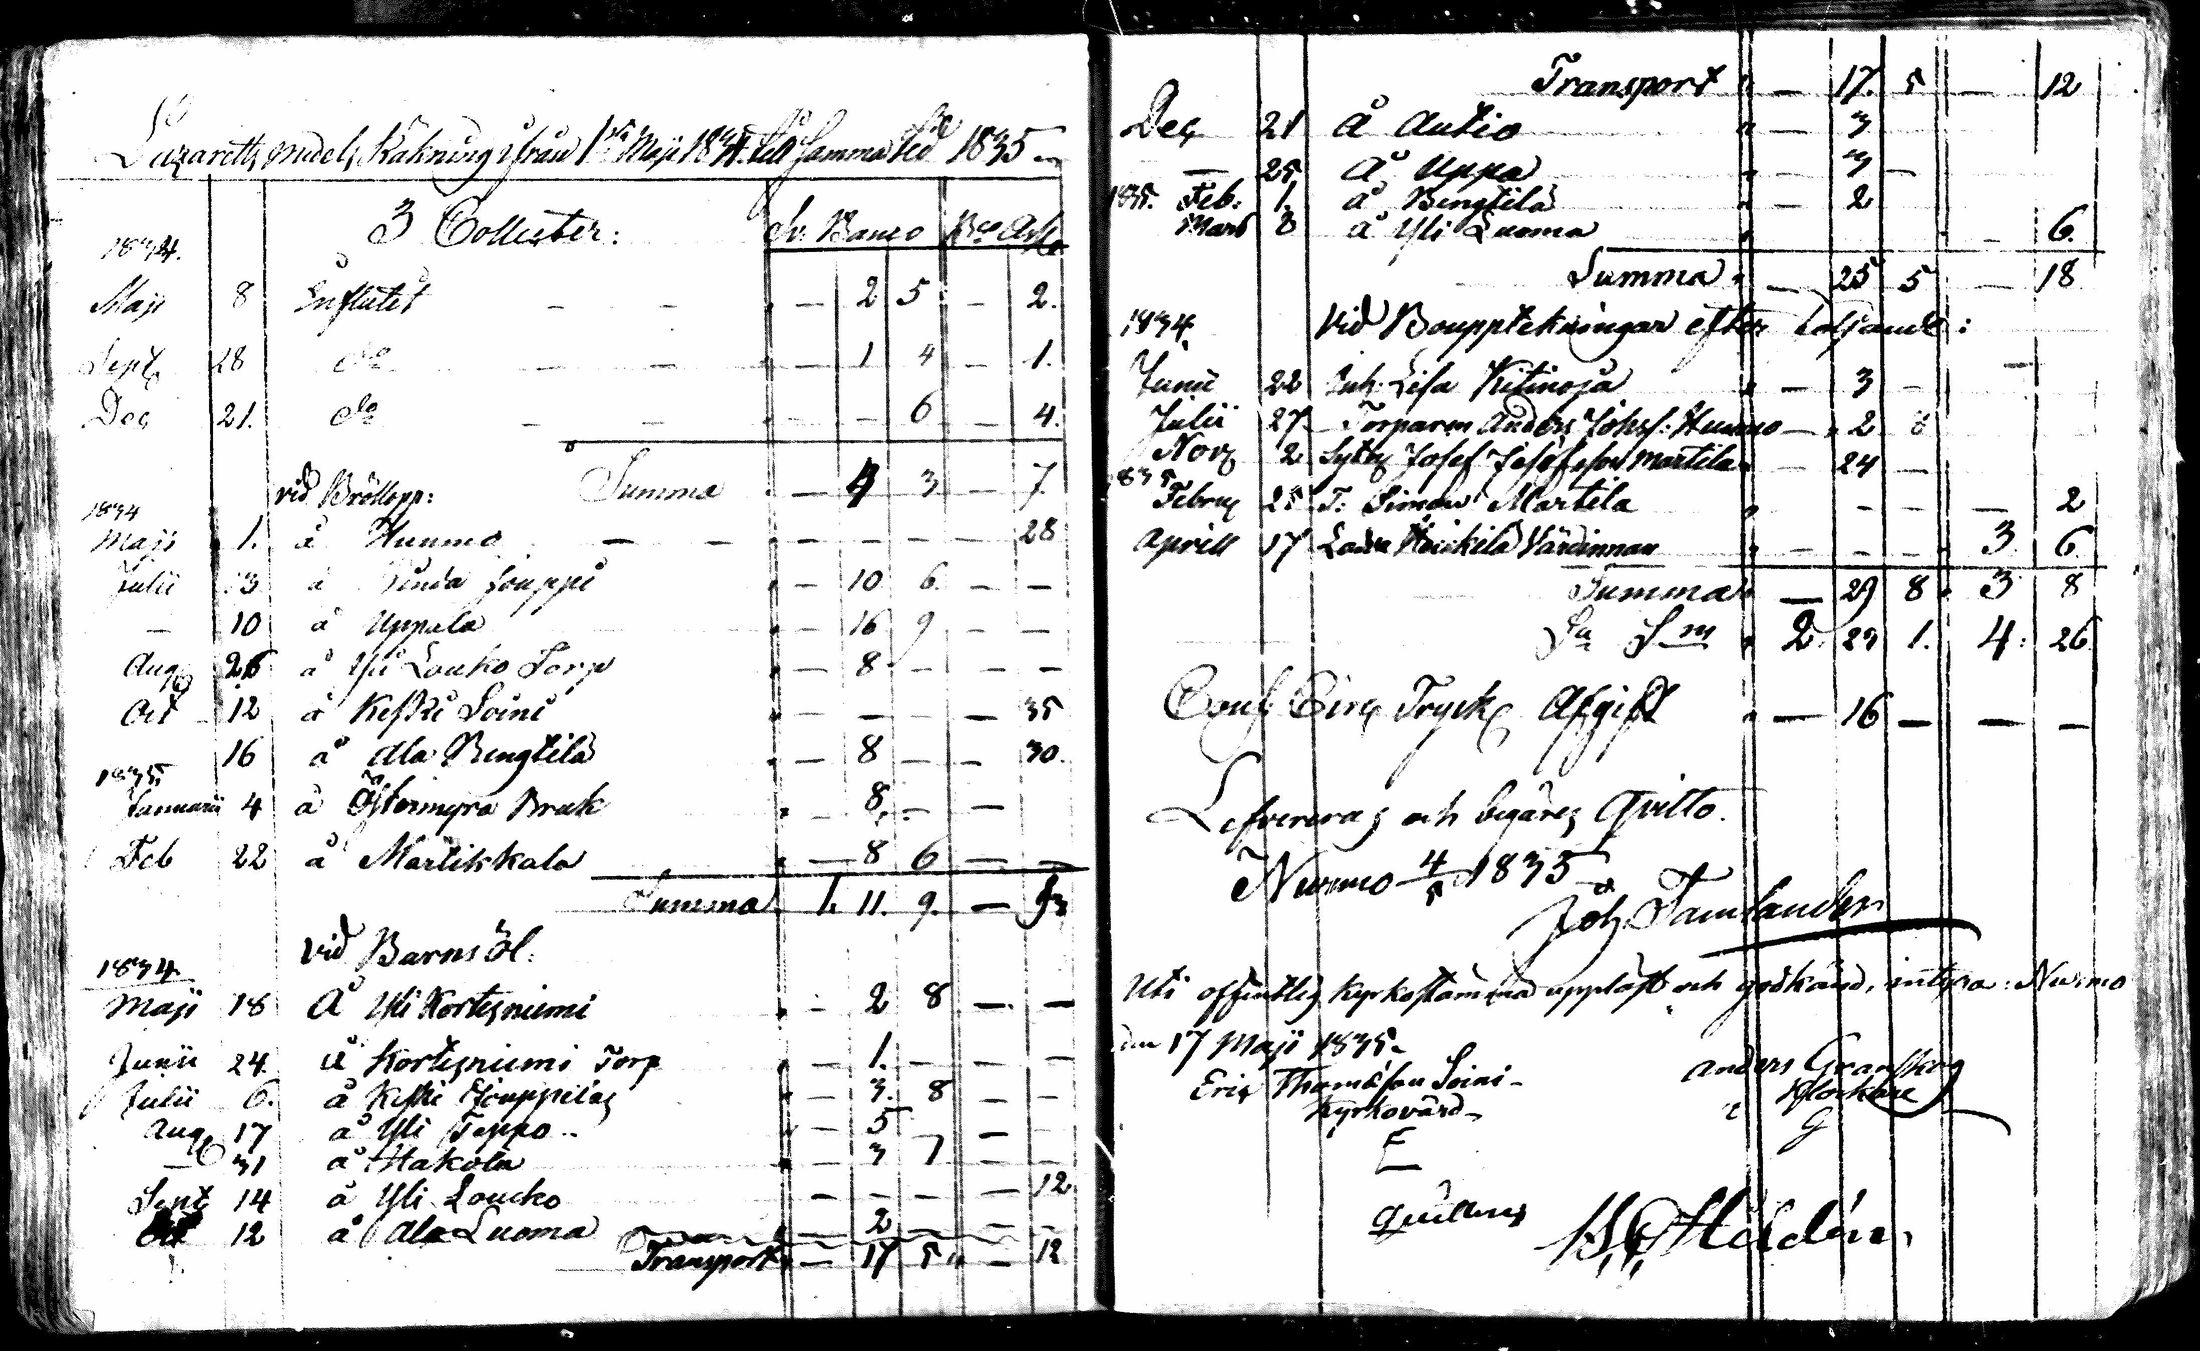 Lazaretts medels Räkning ifrån 1sta Maji 1834 till samma tid 1835
3 Collecter: Sv. Banco Bco Ass
1834.
Maji 8 Influtit — — " — 2 5 — 2.
Sept 28 do — — — 1 4 — 1.
Dec 21. do — — — — 6 — 4.
vid Bröllopp: Summa — 4 3 — 7
1834
Maji 1. å Hunmo — — — — — — — 28
Julii 13 å Jouppi " — 10 6. — —
— 10 å Uppala " — 16 9 — —
Aug 26 å Yli Louko Torp " — 8 — — —
Oct 12 å Keski Soini " — — — — 35
16 å Ala Bengtilä " — 8 — — 30.
1835
Januarii 4 å Östermyra Bruk " — 8. — —
Feb 22 å Martikkala " — 8 6 — —
Summa 1. 11. 9. — 93
vid Barnsöl.
1834
Maji 18 Å Yli Kortesniemi " — 2 8 — —
Junii 24. å Kortesniemi Torp — 1. — — —
Julii 6. å Keski Jouppilas " — 3. 8 — —
Aug 17 å Yli Teppo " — 5 —
— 31 å Hakola " — 3 7 — —
Sept 14 å Yli Loucko — — — — 12
Oct 12 å Ala Luoma — 2 — — —
Transport " — 17 5 " — 12
Transport " — 17. 5 — 12
Dec 21 å Autio " — 3
— 25 å Uppa " — 3 —
1835. Feb: 1. å Bengtilä " — 2
Mars 8 å Yli Luoma " — 6.
Summa " — 25 5 — 18
1834 Vid Boupptekningar efter följande:
Junii 22 Inh. Lisa Kitinoja " — 3 —
Julii 27. Torparen Anders Johss: Hunmo — " 2 8
Nov 2 Sytn Josef Josefsson Martila " — 24 —
1835
Februa 25 T. Simon Martila " — — — 2
Aprill 17 Ladu Heickilä Värdinnan " — — — 3 6
Summa " — 29 8 3 8
Sa Sm " 2. 29 1. 4. 26
Cons Circ Tryck Afgift " — 16 — — —
Lefvereras och begäres Qvitto.
Nurmo 4/5 1835
Joh Tamlander
Uti offentlig Kyrkostämma uppläst och godkänd, intyga: Nurmo
den 17 Maji 1835.
Eric Thomasson Soini Anders Granskog
Kyrkovärd Klockare
E G
Qvitteras